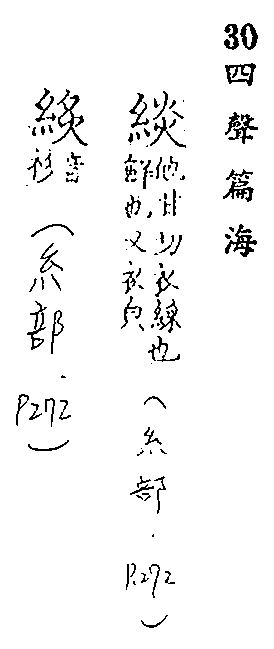 30四聲篇海
緂他甘切衣練也
鮮也又衣皃
(糸部.P.272)
音
衫(糸部.P272)